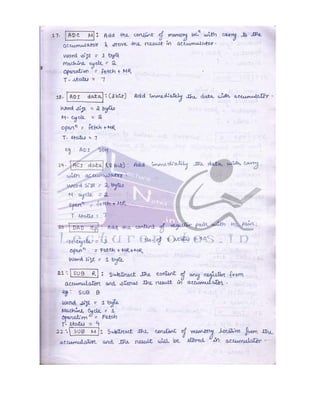 17. ADC M : Add the content of memory locⁿ with carry to the
accumulator & store the result in accumulator.
Word size = 1 byte
Machine cycle = 2
Operation = fetch + MR
T-states = 7
18. ADI data : (8 bit) Add immediately the data with accumulator.
Word size = 2 bytes
M. cycle = 2
opernⁿ = fetch + MR
T. states = 7
eg. ADI 50H
19. ACI data (8 bit) Add immediately the data with carry
with accumulator
Word size = 2 bytes
M. cycle = 2
opernⁿ = fetch + MR
T. states = 7
20. DAD rp : Add the content of register pair with HL pair.
M. cycle = 3
LectureNotes.in
opernⁿ = Fetch + MR + MR
Word size = 1 byte
21: SUB R : Subtract the content of any register from
accumulator and stores the result in accumulator.
eg: SUB B
Word size = 1 byte
Machine Cycle = 1
Operation = Fetch
T. states = 4
22: SUB M : Subtract the content of memory location from the
accumulator and the result will be stored in accumulator.